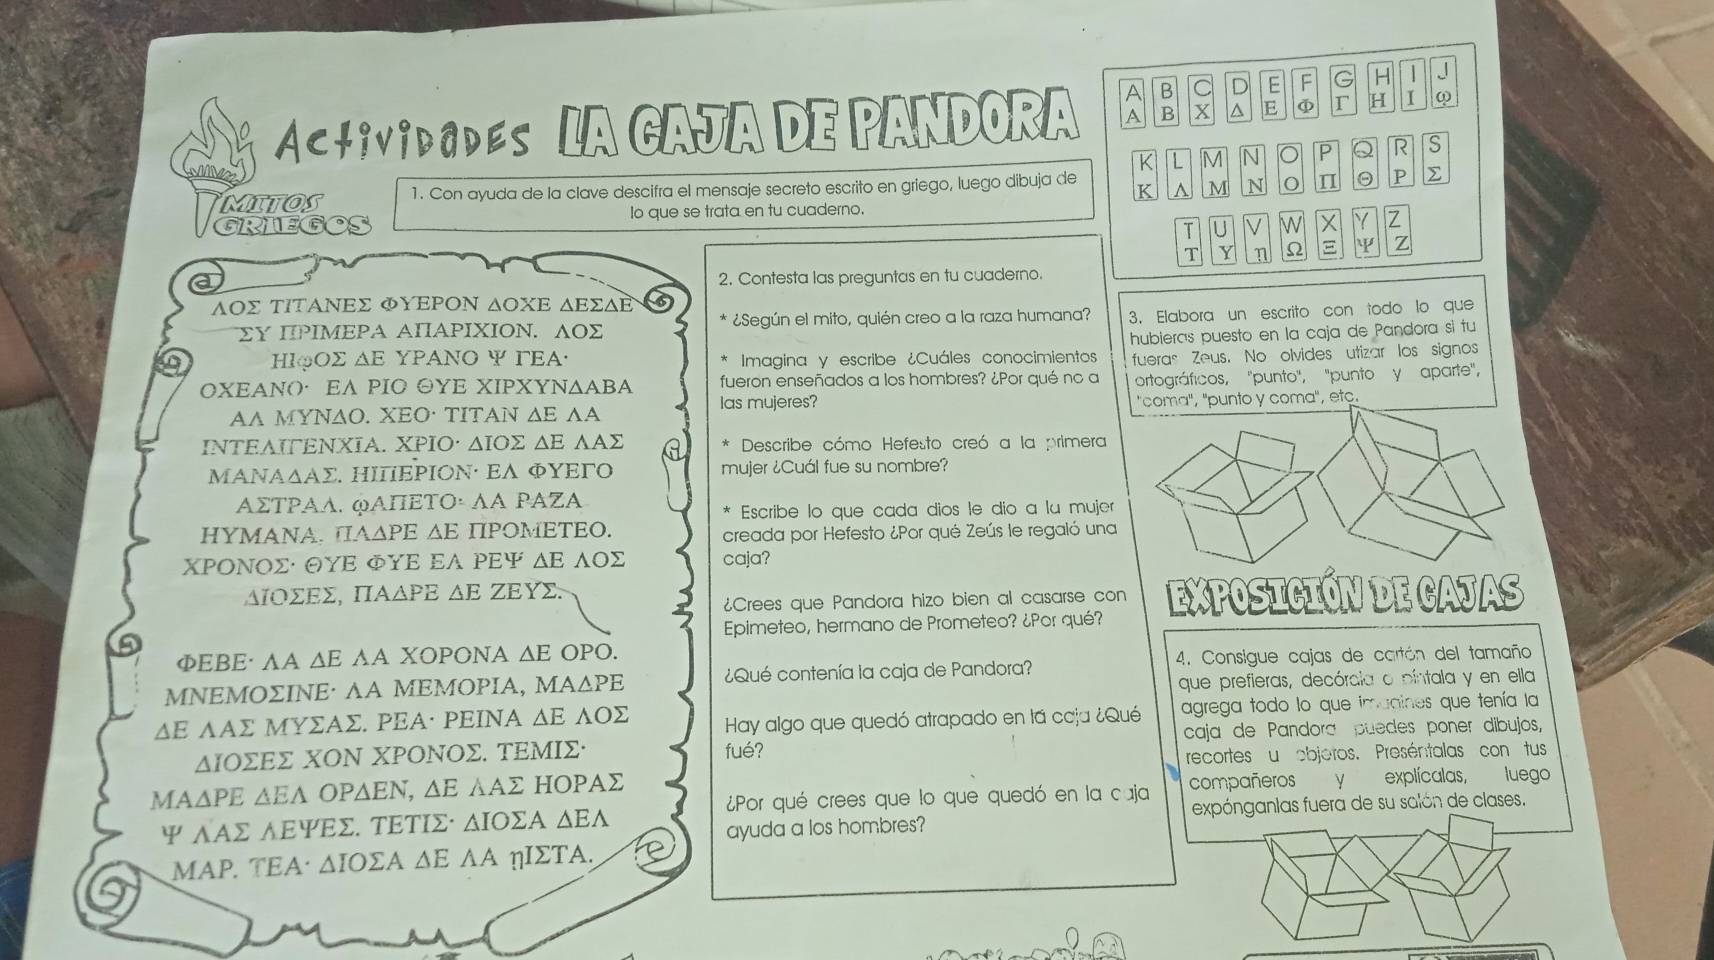 Actividades LA CAJA DE PANDORA
MITOS
GRIEGOS
1. Con ayuda de la clave descifra el mensaje secreto escrito en griego, luego dibuja de
lo que se trata en tu cuaderno.
A B C D E F G H I J
Α Β Χ Δ Ε Φ Γ Η Ι φ
K L M N O P Q R S
Κ Λ Μ Ν Ο Π Θ Ρ Σ
T U V W X Y Z
Τ Υ η Ω Ξ Ψ Ζ
ΛΟΣ ΤΙΤΑΝΕΣ ΦΥΕΡΟΝ ΔΟΧΕ ΔΕΣΔΕ
ΣΥ ΠΡΙΜΕΡΑ ΑΠΑΡΙΧΙΟΝ. ΛΟΣ
ΗΙφΟΣ ΔΕ ΥΡΑΝΟ Ψ ΓΕΑ·
ΟΧΕΑΝΟ· ΕΛ ΡΙΟ ΘΥΕ ΧΙΡΧΥΝΔΑΒΑ
ΑΛ ΜΥΝΔΟ. ΧΕΟ· ΤΙΤΑΝ ΔΕ ΛΑ
ΙΝΤΕΛΙΓΕΝΧΙΑ. ΧΡΙΟ· ΔΙΟΣ ΔΕ ΛΑΣ
ΜΑΝΑΔΑΣ. ΗΙΠΕΡΙΟΝ· ΕΛ ΦΥΕΓΟ
ΑΣΤΡΑΛ. φΑΠΕΤΟ· ΛΑ ΡΑΖΑ
ΗΥΜΑΝΑ. ΠΑΔΡΕ ΔΕ ΠΡΟΜΕΤΕΟ.
ΧΡΟΝΟΣ· ΘΥΕ ΦΥΕ ΕΛ ΡΕΨ ΔΕ ΛΟΣ
ΔΙΟΣΕΣ, ΠΑΔΡΕ ΔΕ ΖΕΥΣ.
ΦΕΒΕ· ΛΑ ΔΕ ΛΑ ΧΟΡΟΝΑ ΔΕ ΟΡΟ.
ΜΝΕΜΟΣΙΝΕ· ΛΑ ΜΕΜΟΡΙΑ, ΜΑΔΡΕ
ΔΕ ΛΑΣ ΜΥΣΑΣ. ΡΕΑ· ΡΕΙΝΑ ΔΕ ΛΟΣ
ΔΙΟΣΕΣ ΧΟΝ ΧΡΟΝΟΣ. ΤΕΜΙΣ·
ΜΑΔΡΕ ΔΕΛ ΟΡΔΕΝ, ΔΕ ΛΑΣ ΗΟΡΑΣ
Ψ ΛΑΣ ΛΕΨΕΣ. ΤΕΤΙΣ· ΔΙΟΣΑ ΔΕΛ
ΜΑΡ. ΤΕΑ· ΔΙΟΣΑ ΔΕ ΛΑ ηΙΣΤΑ.
2. Contesta las preguntas en tu cuaderno.
* ¿Según el mito, quién creo a la raza humana?
* Imagina y escribe ¿Cuáles conocimientos
fueron enseñados a los hombres? ¿Por qué no a
las mujeres?
* Describe cómo Hefesto creó a la primera
mujer ¿Cuál fue su nombre?
* Escribe lo que cada dios le dio a la mujer
creada por Hefesto ¿Por qué Zeús le regaló una
caja?
¿Crees que Pandora hizo bien al casarse con
Epimeteo, hermano de Prometeo? ¿Por qué?
¿Qué contenía la caja de Pandora?
Hay algo que quedó atrapado en la caja ¿Qué
fué?
¿Por qué crees que lo que quedó en la caja
ayuda a los hombres?
3. Elabora un escrito con todo lo que
hubieras puesto en la caja de Pandora si tu
fueras Zeus. No olvides utizar los signos
ortográficos, "punto", "punto y aparte",
"coma", "punto y coma", etc.
EXPOSICIÓN DE CAJAS
4. Consigue cajas de cartón del tamaño
que prefieras, decórala o píntala y en ella
agrega todo lo que imagines que tenía la
caja de Pandora puedes poner dibujos,
recortes u objetos. Preséntalas con tus
compañeros y explícalas, luego
expónganlas fuera de su salón de clases.